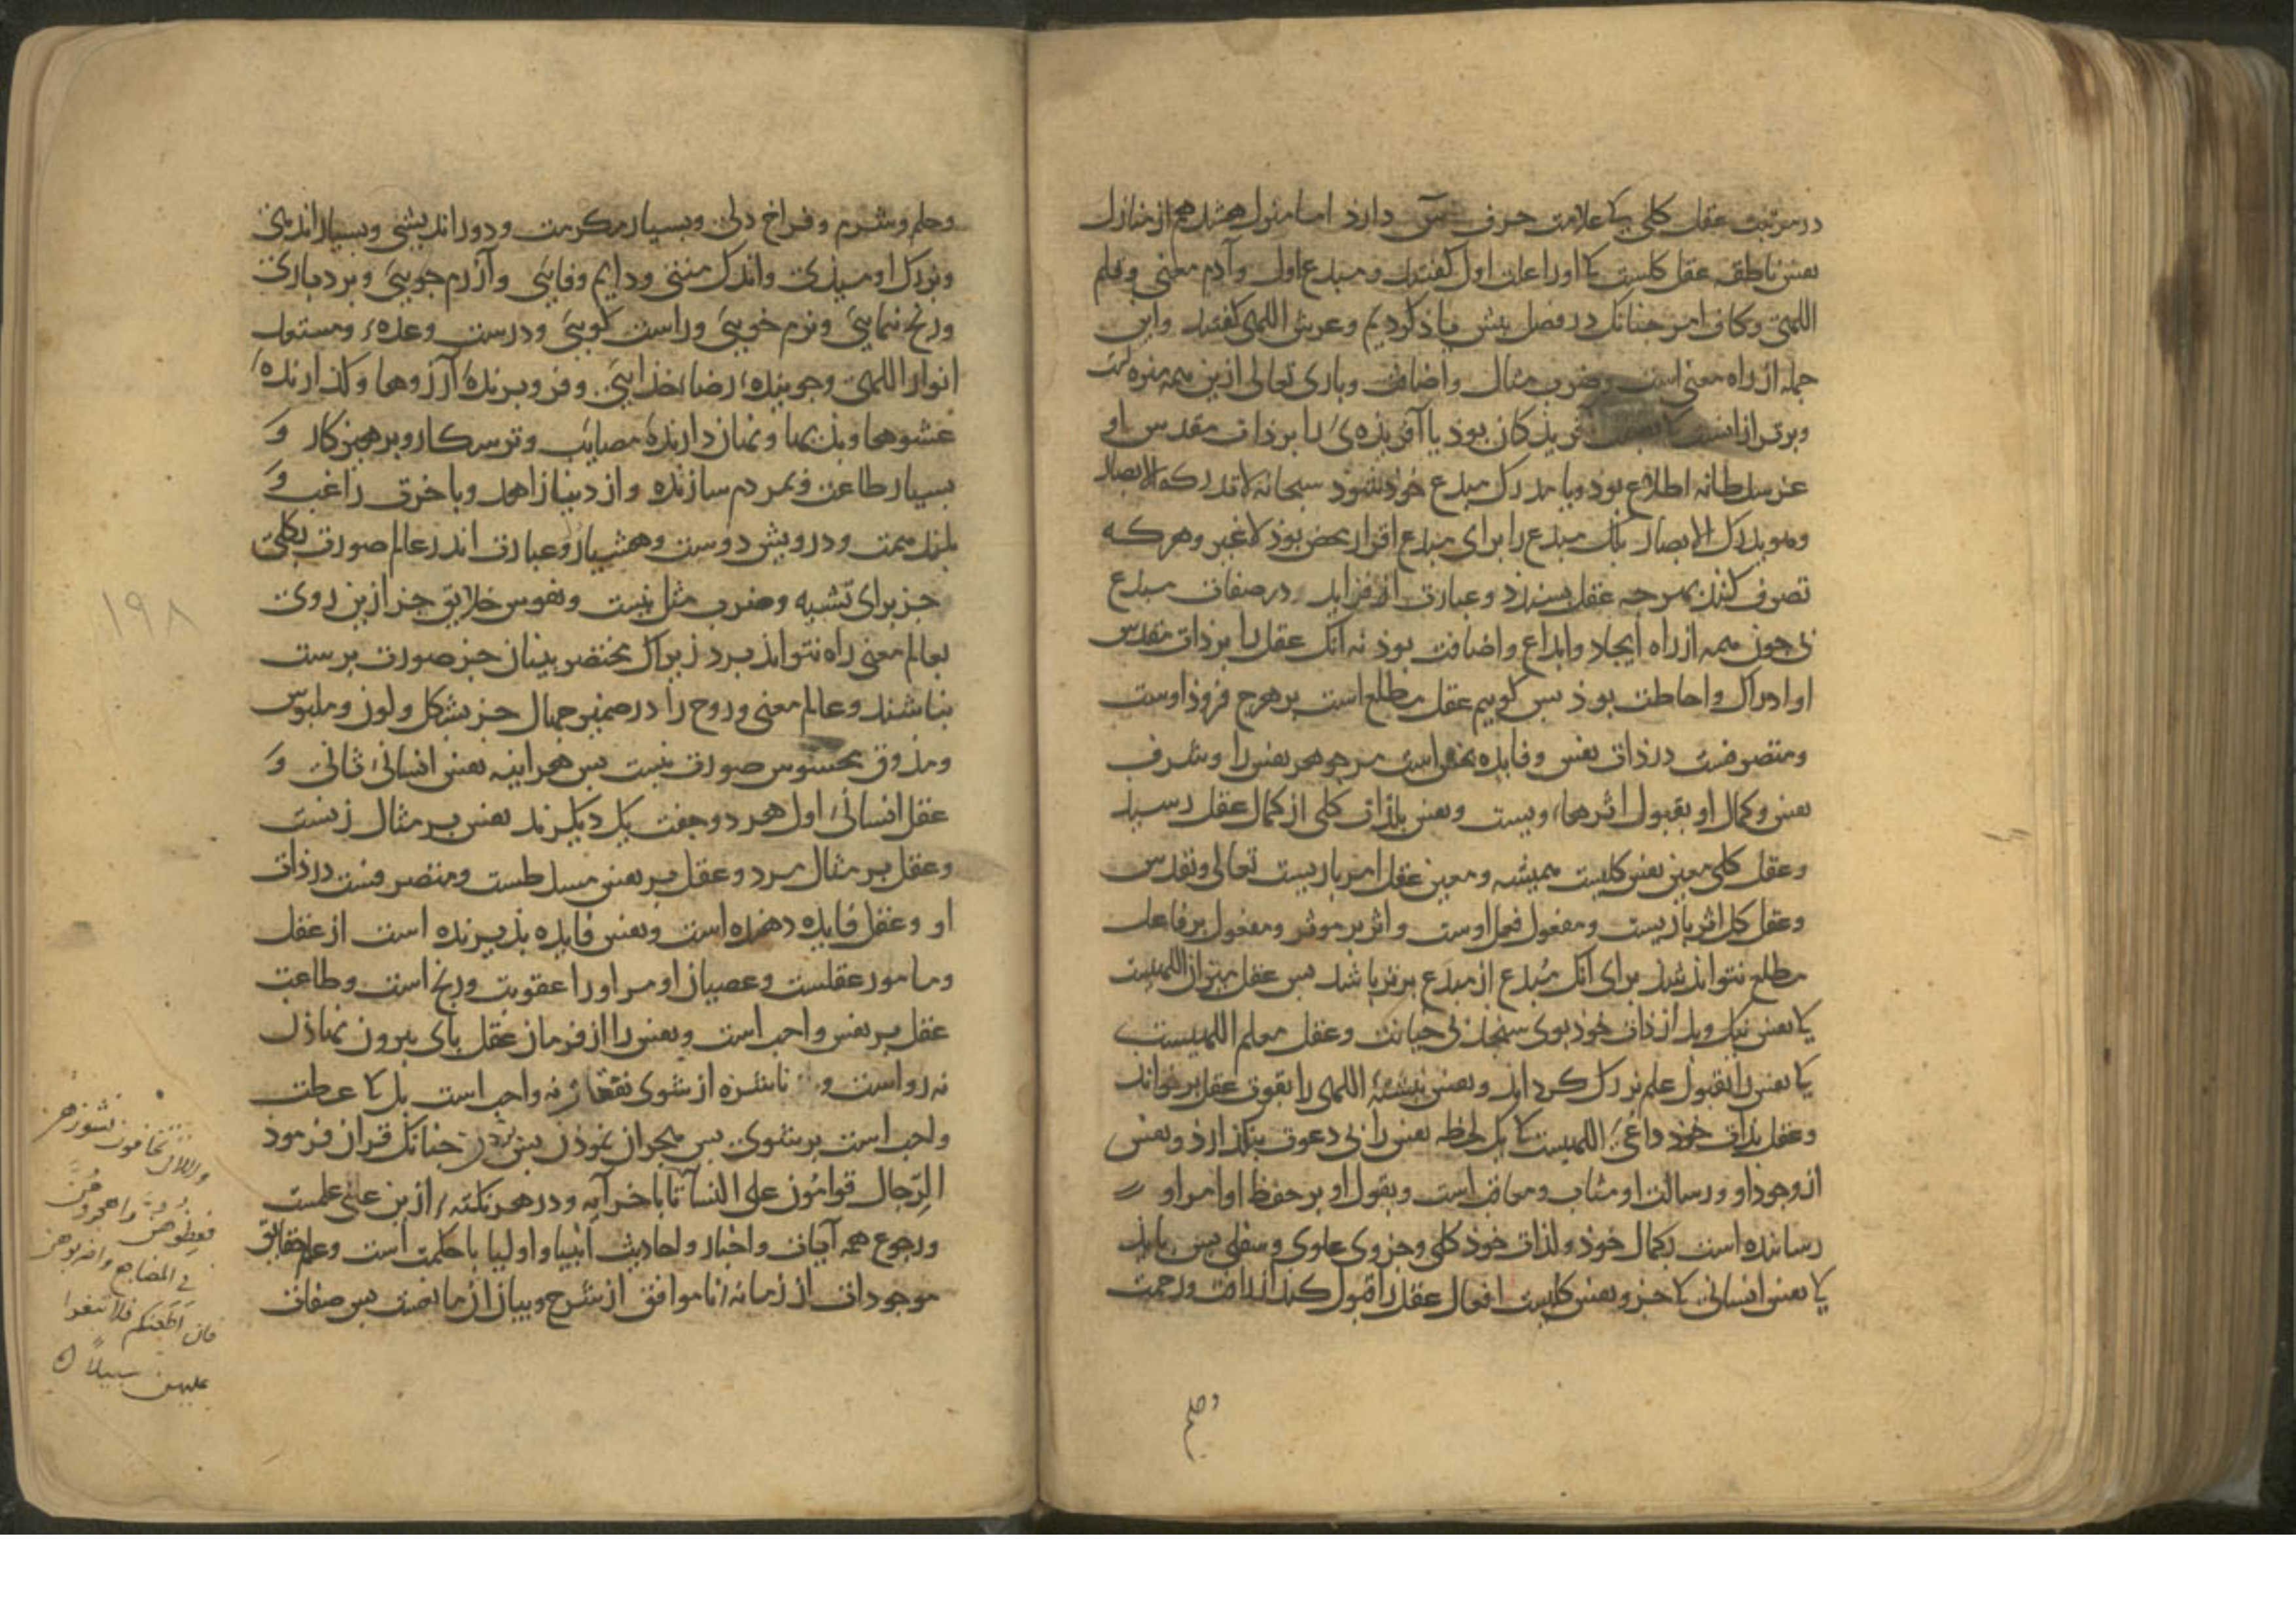 در مرتبت عقل کلی کا علامت حرف س دارد اما منزل هشتم هم از منازل
نفس ناطقه عقل کلست کا اورا علت اول گفتند و مبدع اول و آدم معنی وقلم
اللهی وکاف امر چنانک در فصل پیش یاذ کردیم وعرش اللهی گفتند واین
جمله از راه معنی است وضرب مثال واضافت وباری تعالی ازین همه منزه است
وبرتر ازانست کا آفریذکان بوذ یا آفریذه‌ی را بر ذات مقدس او
عز سلطانه اطلاع بوذ ویا مدرک مبدع خود شود سبحانه لا تدرکه الابصار
وهو یدرک الابصار بلک مبدع را برای مبدع اقرار محض بوذ لا غیر وهرکه
تصرف کند بهرچه عقل بسندد وعبارت از فزاید در صفات مبدع
بی چون همه از راه ایجاد وابداع واضافت بوذ نه آنک عقل را بر ذات مقدس
او ادراک واحاطت بوذ بس کوییم عقل مطلع است بر هرچ فروذ اوست
ومتصرفست در ذات نفس وفایده بخش است مر جوهر نفس را وشرف
نفس وکمال او بقبول اثرهاء ویست ونفس بالذات کلی از کمال عقل رسید
وعقل کلی معین نفس کلیست همیشه ومعین عقل امر باریست تعالی وتقدس
وعقل کل اثر باریست ومفعول فعل اوست واثر بر موثر ومفعول بر فاعل
مطلع نتواند شد برای آنک مُبدَع از مبدِع برتر باشد بس عقل میزان اللهیست
کا نفس نیک وبد از ذات خوذ بوی سنجد بی خیانت وعقل معلم اللهیست
کا نفس را بقبول علم بزرک گرداند ونفس نبشتهٔ اللهی را بقوت عقل بر خواند
وعقل بذات خوذ داعی اللهیست کا یک لحظه نفس را بی دعوت بنکذارذ ونفس
از وجود او ورسالت او مثاب ومعاقب است وبقول او بر حفظ اوامر او
رساننده است بکمال خوذ ولذات خوذ کلی وجزوی علوی وسفلی بس باید
کا نفس انسانی کا جزو نفس کلیست افعال عقل را قبول کند از رافت ورحمت
وحلم
وحلم وشرم وفراخ دلی وبسیار مکرمت ودور اندیشی وبسیار اندهی
وبزرک اومیذی واندک منتی ودایم وفایی وآزرم جویی وبردباری
ورنج نمایی ونرم خویی وراست کویی ودرست وعده ومستعد
انوار اللهی وجوینده رضاء خذایی وفرو برنده آرزوها وکذارنده
عشوها وبذیها ونهان دارنده مصایب وترسکار وپرهیزکار و
بسیار طاعت وبمردم سازنده واز دنیا زاهد وباخرت راغب و
بلند همت ودرویش دوست وهشیار وعبارت اندر عالم صورت بکلی
جز برای تشبیه وضرب مثل نیست ونفوس خلایق جز ازین روی
بعالم معنی راه نتواند برد زیراک مختصر بینان جز صورت پرست
نباشند وعالم معنی وروح را در ضمیر خیال جز بشکل ولون وملبوس
ومذوق محسوس صورت نیست بس هر آینه نفس انسانی ثانی و
عقل انسانی اول هر دو جفت یک دیکرند نفس بر مثال زنست
وعقل بر مثال مرد وعقل بر نفس مسلطست ومتصرفست در ذات
او وعقل فایده دهنده است ونفس فایده بذیرنده است از عقل
ومامور عقلست وعصیان او مر اورا عقوبت ورنج است وطاعت
عقل بر نفس واجب است ونفس را از فرمان عقل بای بیرون نهاذن
نه رواست و ناشزه از شوی نفقات نه واجب است بل کا عظت
واجب است بر شوی بس هجران نموذن بس زدن چنانک قران فرموذ
الرّجال قوامُون علی النسآء تا باخر آیه ودر هر نکته ازین علی علمست
ورجوع همه آیات واخبار واحادیث انبیا واولیا با حکمت است وعلم حقایق
موجودات از زمانه نا موافق از شرح وبیان از ما نصت بس صفات
۱۹۸
واللاتی تخافون نشوزهن
فعظوهن واهجروهن
فی المضاجع واضربوهن
فان اطعنکم فلا تبغوا
علیهن سبیلاً